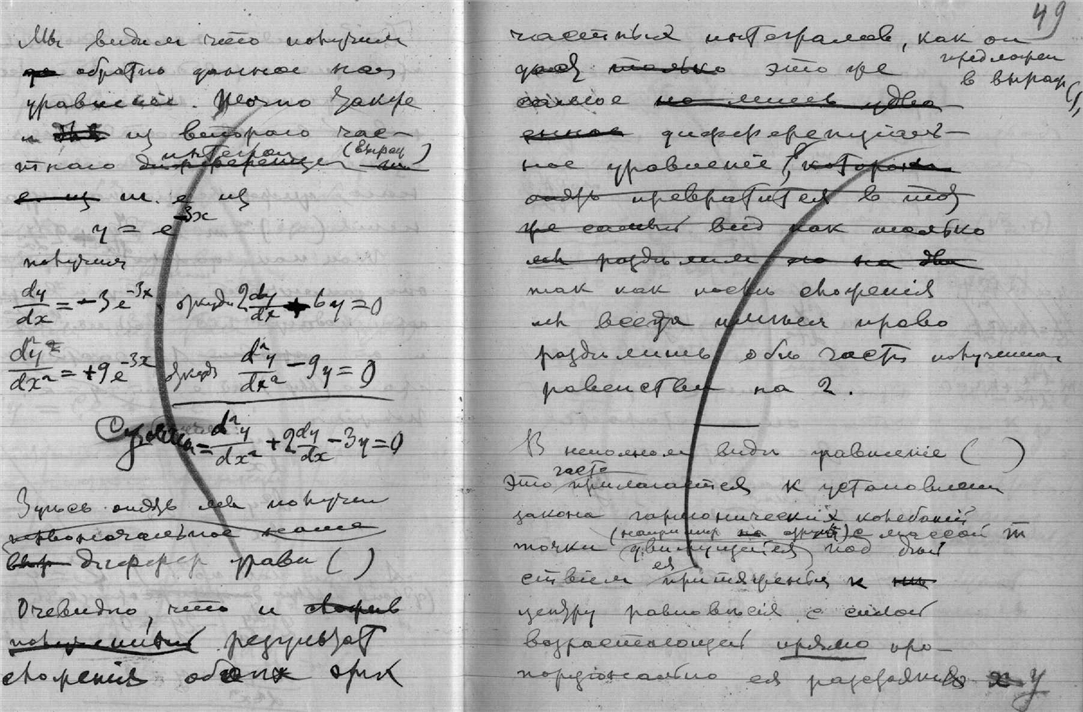 Мы видим что получим
обратно данное нам
уравненіе. Точно также
и из второго час-
тнаго интеграл (выраж )
т. е из
y = e^{-3x}
получим
dy/dx = -3e^{-3x}, откуда 2dy/dx + 6y = 0
d²y/dx² = +9e^{-3x} откуда d²y/dx² - 9y = 0
= d²y/dx² + 2dy/dx - 3y = 0
Здѣсь опять мы получим
первоначальное наше
диффер уравн ( )
Очевидно, что и
результат
сложенія обоих
49
частных интегралов, как он
предложен
в выраж (),
это же
самое но лишь удво-
енное дифференціаль-
ное уравненіе, которое
опять превратится в той
же самый вид как только
мы раздѣлим его на два
так как послѣ сложенія
мы всегда имѣем право
раздѣлить обѣ части полученнаго
равенства на 2.
В неполном видѣ уравненіе ( )
часто
Это прилагается к установленію
закона гармонических колебаній
(например на) с массой m
точки движущейся под дѣй
ствіем ея притяженія к
центру равновѣсія с силой
возрастающей прямо про-
порціонально ея разстоянію y